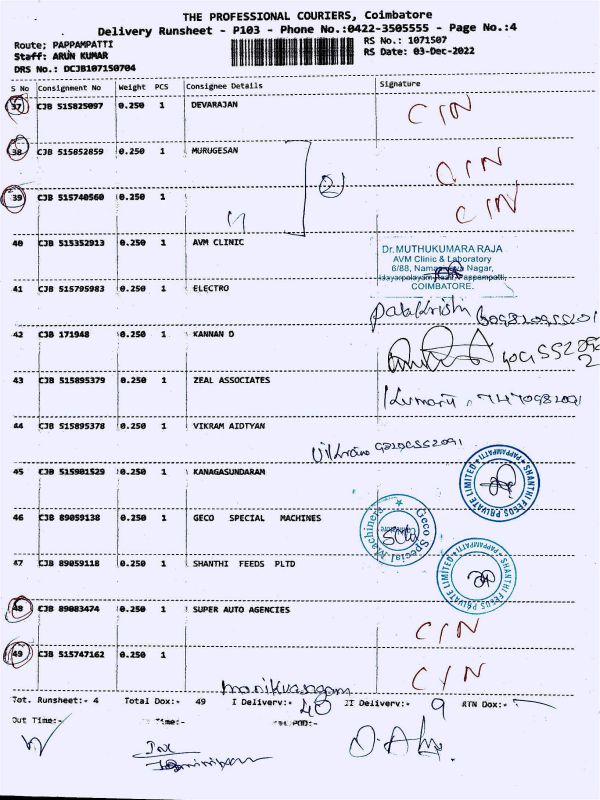 THE PROFESSIONAL COURIERS, Coimbatore
Delivery Runsheet - P103 - Phone No.:0422-3505555 - Page No.:4
Route; PAPPAMPATTI
RS No.: 1071507
Staff: ARUN KUMAR
RS Date: 03-Dec-2022
DRS No.: DCJB107150704
S No Consignment No Weight PCS Consignee Details Signature
37 CJB 515825097 0.250 1 DEVARAJAN CIN
38 CJB 515852859 0.250 1 MURUGESAN CIN
2
39 CJB 515740560 0.250 1 CIN
40 CJB 515352913 0.250 1 AVM CLINIC
Dr. MUTHUKUMARA RAJA
AVM Clinic & Laboratory
COIMBATORE.
41 CJB 515795983 0.250 1 ELECTRO
42 CJB 171948 0.250 1 KANNAN D
43 CJB 515895379 0.250 1 ZEAL ASSOCIATES
44 CJB 515895378 0.250 1 VIKRAM AIDTYAN
45 CJB 515901529 0.250 1 KANAGASUNDARAM
SHANTHI FEEDS PRIVATE LIMITED
PAPPAMPATTI
46 CJB 89059138 0.250 1 GECO SPECIAL MACHINES
Geco Special Machines
47 CJB 89059118 0.250 1 SHANTHI FEEDS PLTD
SHANTHI FEEDS PRIVATE LIMITED
PAPPAMPATTI
48 CJB 89083474 0.250 1 SUPER AUTO AGENCIES CIN
49 CJB 515747162 0.250 1 CIN
Tot. Runsheet:- 4 Total Dox:- 49 I Delivery:- 40 II Delivery:- 9 RTN Dox:-
Out Time:- Time:-